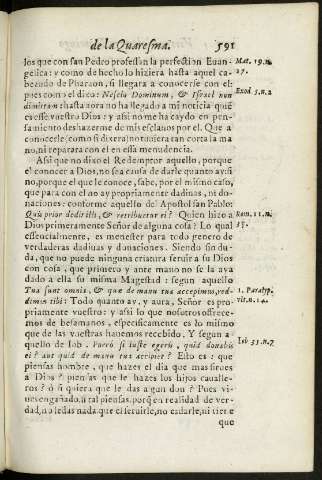 de la Quaresma. 591
los que con san Pedro professan la perfection Euan-
gelica: y como de hecho lo hiziera hasta aquel ca-
beçudo de Pharaon, si llegara a conocerse con el:
pues como el dixo: Nescio Dominum, & Israel non
dimittam: hasta aora no ha llegado a mi noticia quiē
ea esse vuestro Dios: y assi no me ha caydo en pen-
samiento deshazerme de mis esclauos por el. Que a
conocerle (como si dixera) no tuuiera tan corta la ma-
no, ni reparara con el en essa menudencia.
Assi que no dixo el Redemptor aquello, porque
el conocer a Dios, no sea causa de darle quanto ay: si
no, porque el que le conoce, sabe, por el mismo caso,
que para con el no ay propriamente dadiuas, ni do-
naciones: conforme aquello del Apostol san Pablo:
Quis prior dedit illi, & retribuetur ei? Quien hizo a
Dios primeramente Señor de alguna cosa? Lo qual
essencialmente, es menester para todo genero de
verdaderas dadiuas y donaciones. Siendo sin du-
da, que no puede ninguna criatura seruir a su Dios
con cosa, que primero y ante mano no se la aya
dado a ella su misma Magestad: segun aquello
Tua sunt omnia, & quæ de manu tua accepimus, red-
dimus tibi: Todo quanto ay, y aura, Señor es pro-
priamente vuestro: y assi lo que nosotros ofrece-
mos de besamanos, especificamente es lo mismo
que de las vuestras hauemos recebido. Y segun a-
quello de Iob: Porrò si iustè egeris, quid donabis
ei? aut quid de manu tua accipiet? Esto es: que
piensas hombre, que hazes el dia que mas sirues
a Dios? piensas que le hazes los hijos caualle-
ros? ò si quiera que le das algun don? Pues vi-
ues engañado, si tal piensas, porq̃ en realidad de ver-
dad, no le das nada que el seruirle, no es darle, ni tiene
que
Mat. 19. n.
27.
Exod. 5. n. 2
Rom. 11. n.
35.
1. Paralyp.
vlt. n. 14.
Iob 35. n. 7